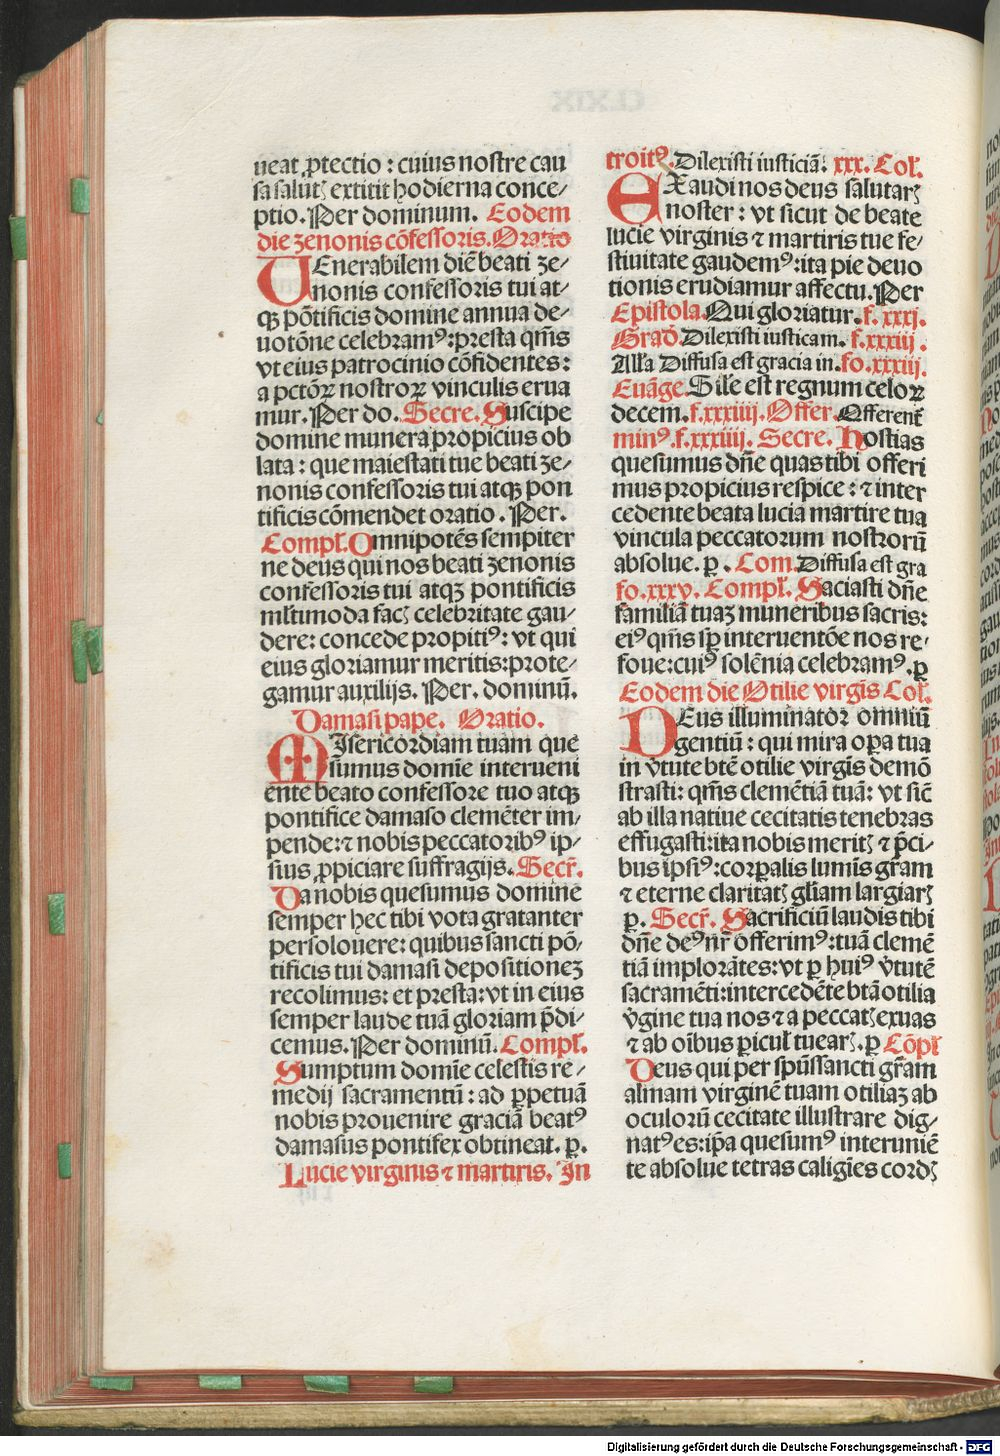 ueat ꝓtectio : cuius nostre cau
sa salutꝫ extitit hodierna conce⸗
ptio. Per dominum. Eodem
die zenonis cōfessoris. Oratio
UEnerabilem diē beati ze⸗
nonis confessoris tui at⸗
qꝫ pōtificis domine annua de⸗
uotōne celebramꝰ: presta qm̄s
vt eius patrocinio cōfidentes :
a pctōꝝ nostroꝝ vinculis erua
mur. Per do. Secre. Suscipe
domine munera propicius ob
lata : que maiestati tue beati ze⸗
nonis confessoris tui atqꝫ pon
tificis cōmendet oratio . Per.
Compl̄. Omnipotēs sempiter
ne deus qui nos beati zenonis
confessoris tui atqꝫ pontificis
ml̓timoda facꝫ celebritate gau⸗
dere: concede propitiꝰ: vt qui
eius gloriamur meritis: prote⸗
gamur auxilijs. Per. dominū.
Damasi pape. Oratio.
MIsericordiam tuam que
sumus domīe interueni
ente beato confessore tuo atqꝫ
pontifice damaso clemēter im⸗
pende: ⁊ nobis peccatoribꝰ ip⸗
sius ꝓpiciare suffragijs. Secr̄.
Da nobis quesumus domine
semper hec tibi vota gratanter
persoluere: quibus sancti pō⸗
tificis tui damasi depositioneꝫ
recolimus: et presta: vt in eius
semper laude tuā gloriam p̄di⸗
cemus. Per dominū. Compl̄.
Sumptum domīe celestis re⸗
medij sacramentū : ad ꝑpetuā
nobis prouenire graciā beatꝰ
damasus pontifex obtineat. ꝑ.
Lucie virginis ⁊ martiris. In
troitꝰ. Dilexisti iusticiā. xxx. Col̄.
EXaudi nos deus salutarꝫ
noster : vt sicut de beate
lucie virginis ⁊ martiris tue fe⸗
stiuitate gaudemꝰ: ita pie deuo
tionis erudiamur affectu. Per
Epistola. Qui gloriatur. f. xxxj.
Grad̄. Dilexisti iusticam. f. xxxiij .
Alla Diffusa est gracia in. fo. xxxiij.
Euāge. Sil̓e est regnum celoꝝ
decem. f. xxxiiij. Offer. Offerent̄
minꝰ. f. xxxiiij. Secre. Hostias
quesumus dn̄e quas tibi offeri
mus propicius respice : ⁊ inter
cedente beata lucia martire tua
vincula peccatorum nostrorū
absolue. ꝑ . Com. Diffusa est gra
fo. xxxv. Compl̄. Saciasti dn̄e
familiā tuaꝫ muneribus sacris:
eiꝰ qm̄s sꝑ interuentōe nos re⸗
foue: cuiꝰ solēnia celebramꝰ. ꝑ
Eodem die Otilie virgīs Col̄.
DEus illuminator omniū
gentiū : qui mira oꝑa tua
in v̓tute btē otilie virgīs demō
strasti: qm̄s clemētiā tuā: vt sic̄
ab illa natiue cecitatis tenebras
effugasti: ita nobis meritꝫ ⁊ p̄ci⸗
bus ip̄siꝰ: corꝑalis lumīs gr̄am
⁊ eterne claritatꝫ gl̄iam largiarꝫ
ꝑ. Secr̄. Sacrificiū laudis tibi
dn̄e deꝰ nr̄ offerimꝰ: tuā clemē
tiā implorātes: vt ꝑ huiꝰ v̓tutē
sacramēti: intercedēte btā otilia
v̓gine tua nos ⁊ a peccatꝫ exuas
⁊ ab oībus ꝑicul̓ tuearꝫ. ꝑ Cōpl̄
Deus qui per spūssancti gr̄am
almam virginē tuam otiliaꝫ ab
oculorū cecitate illustrare dig⸗
natꝰ es: ip̄a quesumꝰ interuniē
te absolue tetras caligīes cordꝫ
Digitalisierung gefördert durch die Deutsche Forschungsgemeinschaft - DFG